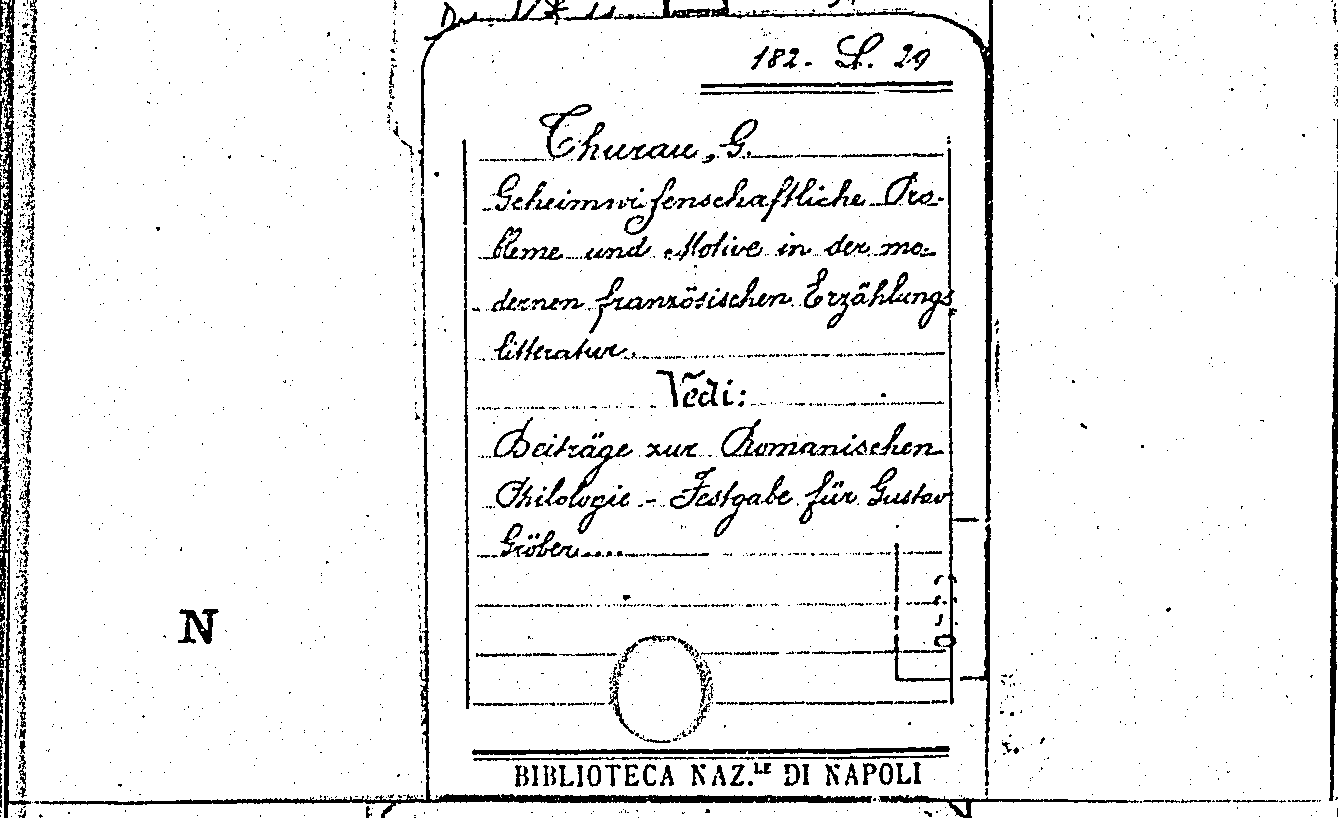 182. L. 29
Thurau, G.
Geheimwißenschaftliche Pro-
bleme und Motive in der mo-
dernen französischen Erzählungs
litteratur.
Vedi:
Beiträge zur Romanischen
Philologie - Festgabe für Gustav
Gröber....
N
BIBLIOTECA NAZ.LE DI NAPOLI